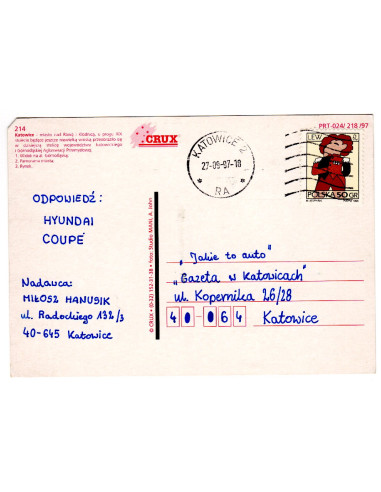 214
Katowice - miasto nad Rawą i Kłodnicą, u progu XIX
CRUX
PRT-024/ 218 /97
KATOWICE 2
27-09-97-18
RA
LEW
POLSKA 50 GR
ODPOWIEDŹ:
HYUNDAI
COUPÉ
Nadawca:
MIŁOSZ HANUSIK
ul. Radockiego 132/3
40-645 Katowice
© CRUX • (0-32) 152-37-38 • Foto: Studio MARI, A. John
„Jakie to auto"
„Gazeta w Katowicach"
ul. Kopernika 26/28
40-064 Katowice